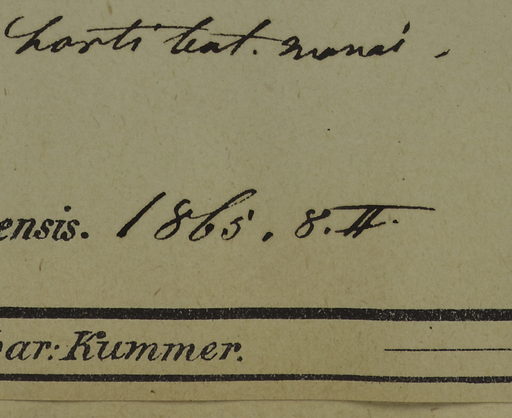 horti bot. monac.
ensis. 1865. 8. II.
bar: Kummer.